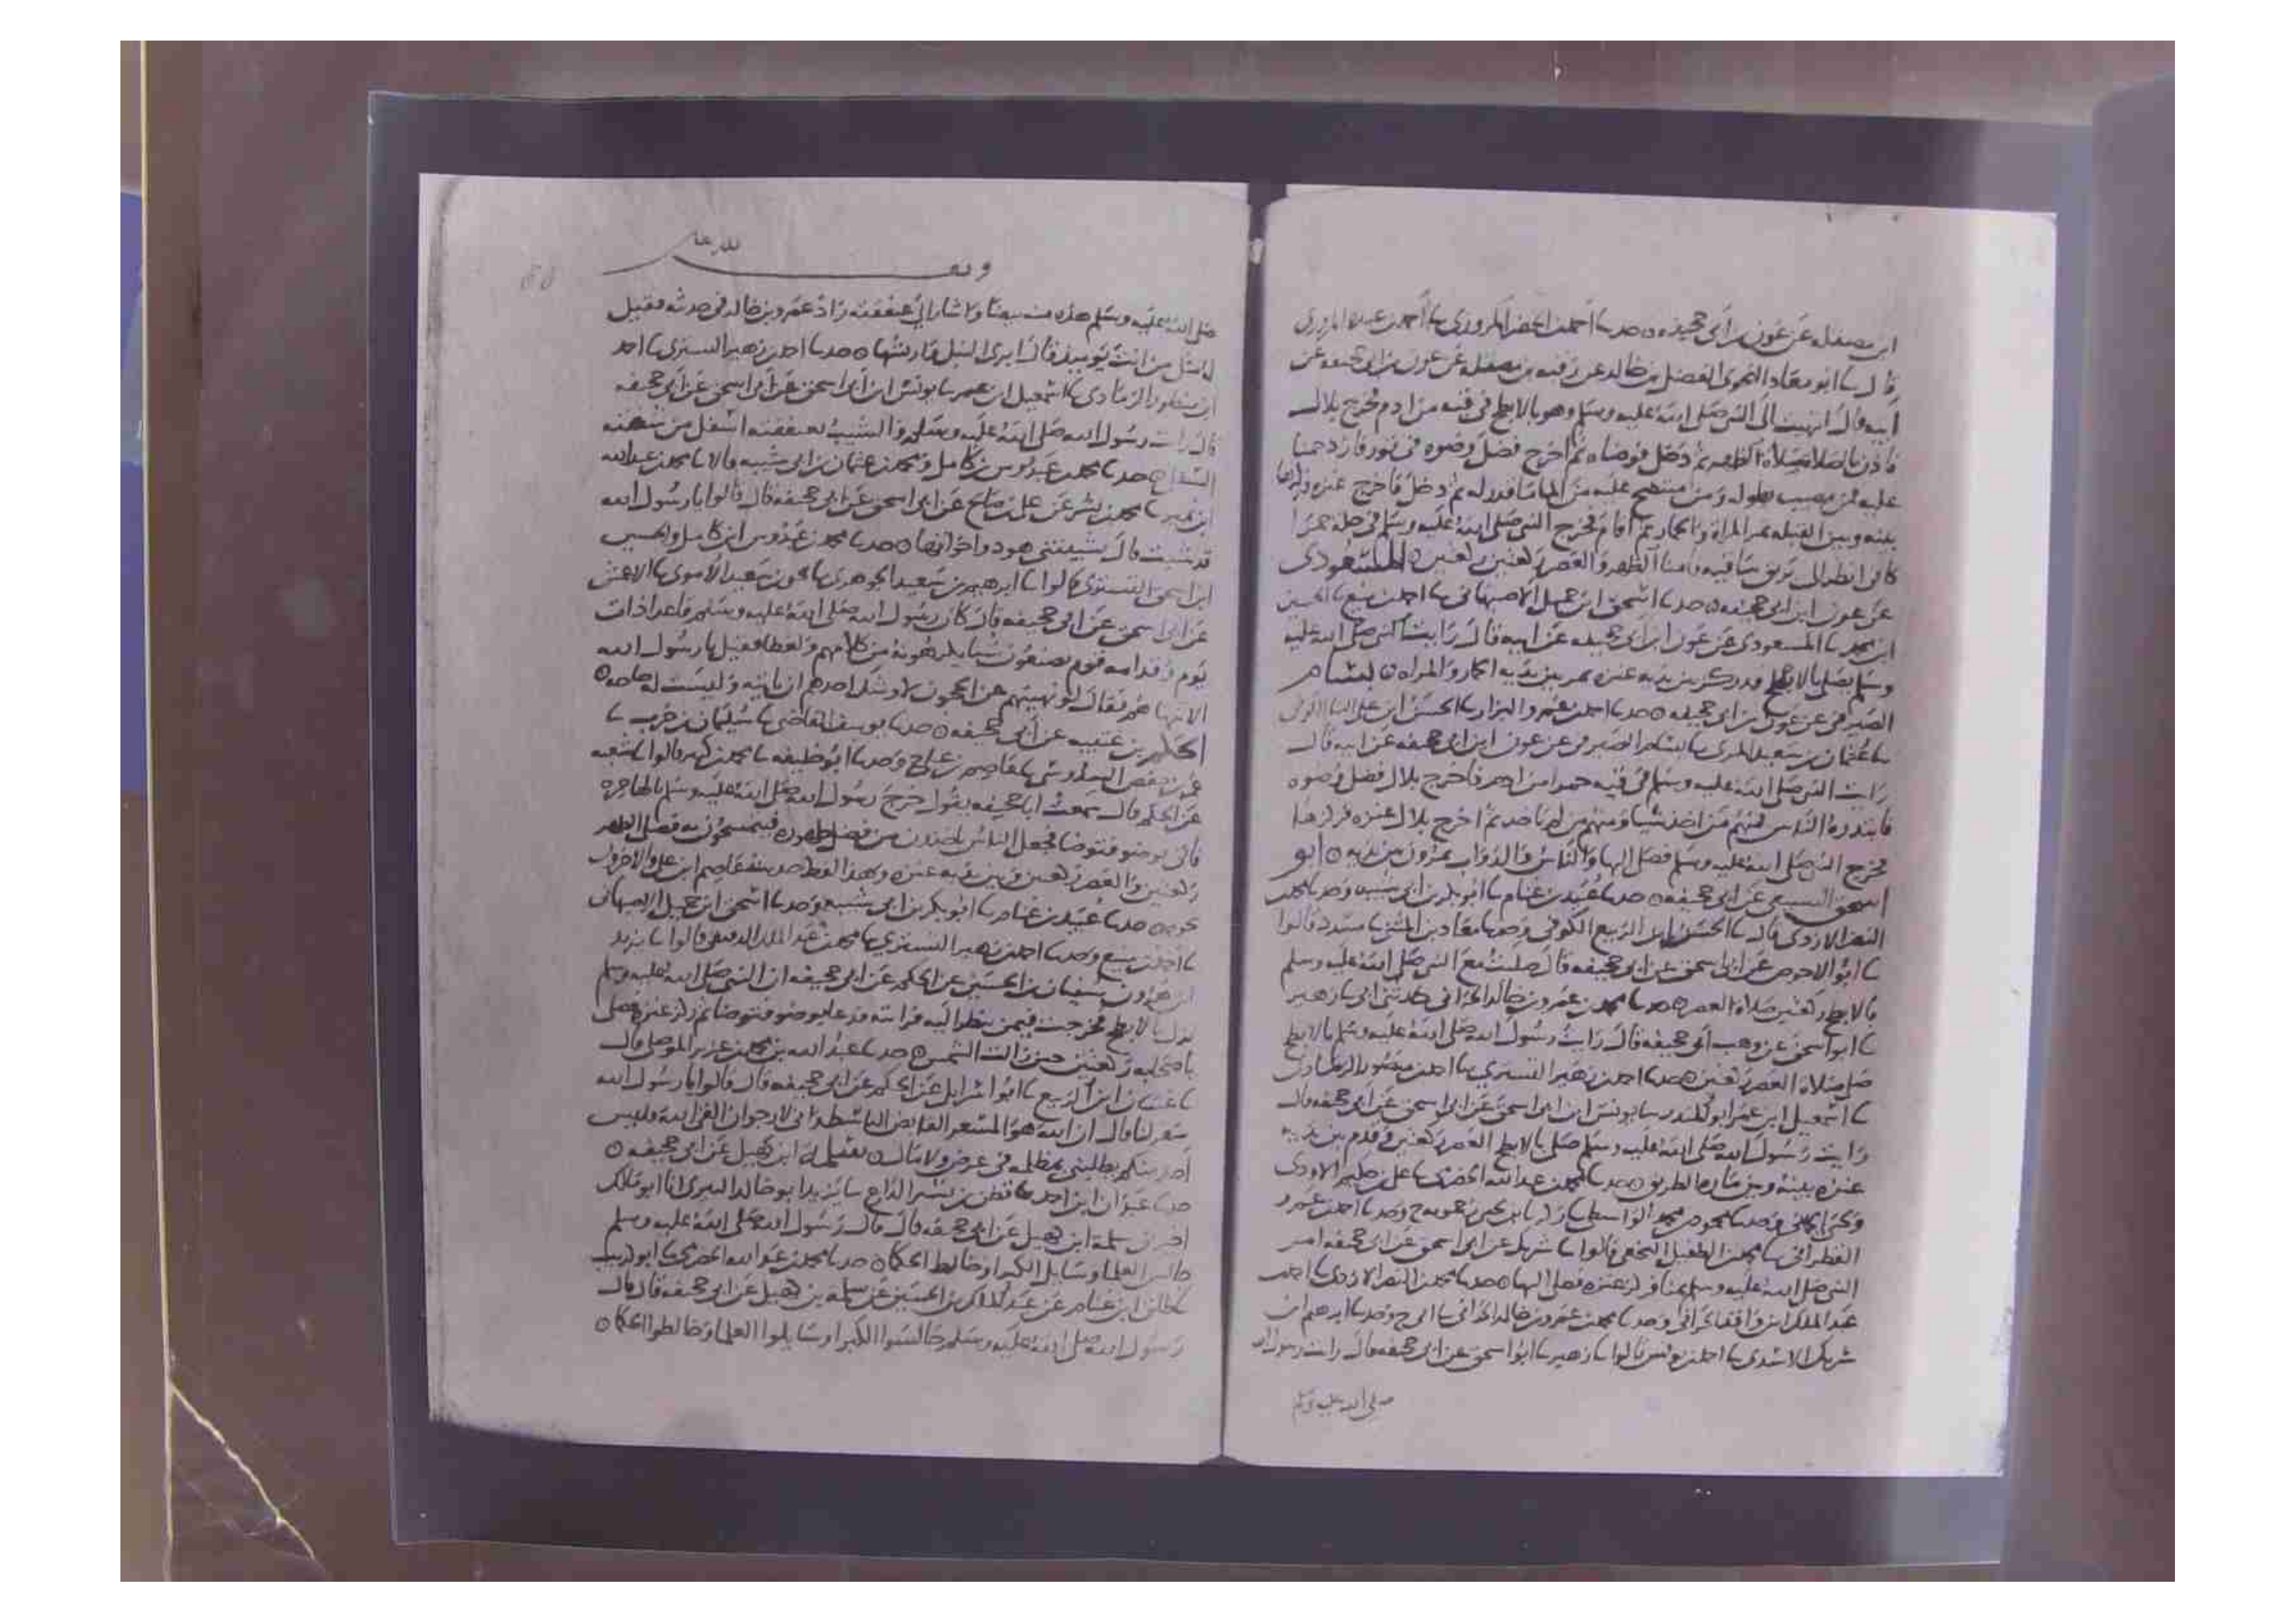 ابن مصقله عن عون بن ابي جحيفه ٥ حدثنا احمد بن الخضر المروزي ثنا احمد بن عبده المروزي
قال ثنا ابو معاذ النحوي الفضل بن خالد عن رقبه بن مصقله عن عون بن ابي جحيفه عن
ابيه قال انتهيت الى النبي صلى الله عليه وسلم وهو بالابطح في قبه من ادم فخرج بلال
فاذن بالصلاه صلاه الظهر ثم دخل فتوضاه ثم اخرج فضل وضوه في تور فازدحمنا
عليه فمن مصيب ومن منتضح عليه من الما ثم دخل فاخرج عنزه
بينه وبين القبله تمر المراه والحمار ثم اقام فخرج النبي صلى الله عليه وسلم في حله حمرا
كاني انظر الى بريق ساقيه فامنا الظهر والعصر ركعتين ركعتين ٥ المسعودي
عن عون ابن ابي جحيفه ٥ حدثنا اسحق ابن جميل الاصبهاني ثنا احمد بن منيع ثنا الحسين
ابن محمد ثنا المسعودي عن عون ابن ابي جحيفه عن ابيه قال رايت النبي صلى الله عليه
وسلم يصلي بالابطح وقد ركز بين يديه عنزه يمر بين يديه الحمار والمراه ٥ بسام
الصيرفي عن عون بن ابي جحيفه ٥ حدثنا احمد بن عمرو البزار ثنا الحسن ابن علي
ثنا عثمان بن سعيد المري ثنا بسام الصيرفي عن عون ابن ابي جحيفه عن ابيه قال
رايت النبي صلى الله عليه وسلم في قبه حمرا من ادم فاخرج بلال فضل وضوه
فابتدره الناس فمنهم من اخذ شيا ومنهم من لم ياخذ ثم اخرج بلال عنزه فركزها
فخرج النبي صلى الله عليه وسلم فصلى اليها والناس والدواب يمرون من يديه ٥ ابو
اسحق السبيعي عن ابي جحيفه ٥ حدثنا عبيد بن غنام ثنا ابو بكر بن ابي شيبه وحدثنا محمد بن
النضر الازدي قال ثنا الحسن ابن الربيع الكوفي وحدثنا معاذ بن المثنى ثنا مسدد قالوا
ثنا ابو الاحوص عن ابي اسحق عن ابي جحيفه قال صليت مع النبي صلى الله عليه وسلم
بالابطح ركعتين صلاه العصر ٥ حدثنا محمد بن عمرو بن خالد الحراني حدثني ابي ثنا زهير
ثنا ابو اسحق عن وهب ابي جحيفه قال رايت رسول الله صلى الله عليه وسلم بالابطح
صلى صلاه العصر ركعتين ٥ حدثنا احمد بن زهير التستري ثنا احمد بن منصور الرمادي
ثنا اسمعيل ابن عمر ابو المنذر ثنا يونس ابن ابي اسحق عن ابي اسحق عن ابي جحيفه قال
رايت رسول الله صلى الله عليه وسلم صلى بالابطح العصر ركعتين وقدم بين يديه
عنزه بينه وبين ماره الطريق ٥ حدثنا محمد بن عبدالله الحضرمي ثنا علي بن حكيم الاودي
ويحيى الحماني وحدثنا محمود بن محمد الواسطي ثنا زكريا بن يحيى زحمويه ح وحدثنا احمد بن عمرو
القطراني ثنا محمد بن الطفيل النخعي قالوا ثنا شريك عن ابي اسحق عن ابي جحيفه
النبي صلى الله عليه وسلم بمنا فركز عنزه فصلى اليها ٥ حدثنا محمد بن النضر الازدي ثنا احمد بن
عبد الملك ابن واقد الحراني وحدثنا محمد بن عمرو بن خالد الحراني ثنا ابي ح وحدثنا ابرهيم ابن
شريك الاسدي ثنا احمد بن يونس قالوا ثنا زهير ثنا ابو اسحق عن ابي جحيفه قال رايت رسول الله
صلى الله عليه وسلم
وقف لله تعالى
صلى الله عليه وسلم هذه منه بيضا واشار الى عنفقته زاد عمرو بن خالد في حديثه فقيل
له مثل من انت يوميذ قال ابري النبل واريشها ٥ حدثنا احمد بن زهير التستري ثنا احمد
ابن منصور الرمادي ثنا اسمعيل ابن عمر ثنا يونس ابن ابي اسحق عن ابي اسحق عن ابي جحيفه
قال رايت رسول الله صلى الله عليه وسلم والشيب بعنفقته اسفل من شفته
السفلى ٥ حدثنا محمد بن عبدوس بن كامل ومحمد بن عثمان بن ابي شيبه قالا ثنا محمد بن عبدالله
ابن نمير ثنا محمد بن بشر عن علي بن صالح عن ابي اسحق عن ابي جحيفه قال قالوا يا رسول الله
قد شبت قال شيبتني هود واخواتها ٥ حدثنا محمد بن عبدوس ابن كامل والحسين
ابن اسحق التستري قالوا ثنا ابرهيم بن سعيد الجوهري ثنا يحيى بن سعيد الاموي ثنا الاعمش
عن ابي اسحق عن ابي جحيفه قال كان رسول الله صلى الله عليه وسلم قاعدا ذات
يوم وقدامه قوم يصنعون شيا يكرهونه من كلامهم ولغطا فقيل يا رسول الله
الا تنهاهم فقال لو نهيتهم عن الحجون لاوشك احدهم ان ياتيه وليست له حاجه ٥
الحكم بن عتيبه عن ابي جحيفه ٥ حدثنا يوسف القاضي ثنا سليمان بن حرب ثنا
عمر بن حفص السدوسي ثنا عاصم بن علي ح وحدثنا ابو خليفه ثنا محمد بن كثير قالوا ثنا شعبه
عن الحكم قال سمعت ابا جحيفه يقول خرج رسول الله صلى الله عليه وسلم بالهاجره
فاتي بوضو فتوضا فجعل الناس ياخذون من فضل طهوره فيتمسحون به فصلى الظهر
ركعتين والعصر ركعتين وبين يديه عنزه وهذا لفظ حديث عاصم ابن علي والاخرون
نحوه ٥ حدثنا عبيد بن غنام ثنا ابو بكر بن ابي شيبه وحدثنا اسحق ابن جميل الاصبهاني
ثنا احمد بن منيع وحدثنا احمد بن زهير التستري ثنا محمد بن عبد الملك الدقيقي قالوا ثنا يزيد
ابن هرون ثنا سفيان بن الحسين عن الحكم عن ابي جحيفه ان النبي صلى الله عليه وسلم
نزل بالابطح فخرجت فيمن ينظر اليه فرايته قد دعا بوضو فتوضا ثم ركز عنزه فصلى
باصحابه ركعتين حين زالت الشمس ٥ حدثنا عبد الله بن محمد بن عزيز الموصلي قال
ثنا غسان ابن الربيع ثنا ابو اسرائيل عن الحكم عن ابي جحيفه قال قالوا يا رسول الله
سعر لنا قال ان الله هو المسعر القابض الباسط واني لارجو ان القى الله وليس
احد منكم يطلبني بمظلمه في عرض ولا مال ٥ سلمه ابن كهيل عن ابي جحيفه ٥
حدثنا عبدان ابن احمد ثنا قطن بن نسير الذراع ثنا يزيد ابو خالد البسري انا ابو مالك
اخبرني سلمه ابن كهيل عن ابي جحيفه قال قال رسول الله صلى الله عليه وسلم
جالس العلما وسايل الكبرا وخالط الحكما ٥ حدثنا محمد بن عبد الله الحضرمي ثنا ابو كريب
ثنا طلق ابن غنام عن عبد الملك بن الحسين عن سلمه بن كهيل عن ابي جحيفه قال قال
رسول الله صلى الله عليه وسلم جالسوا الكبرا وسايلوا العلما وخالطوا الحكما ٥